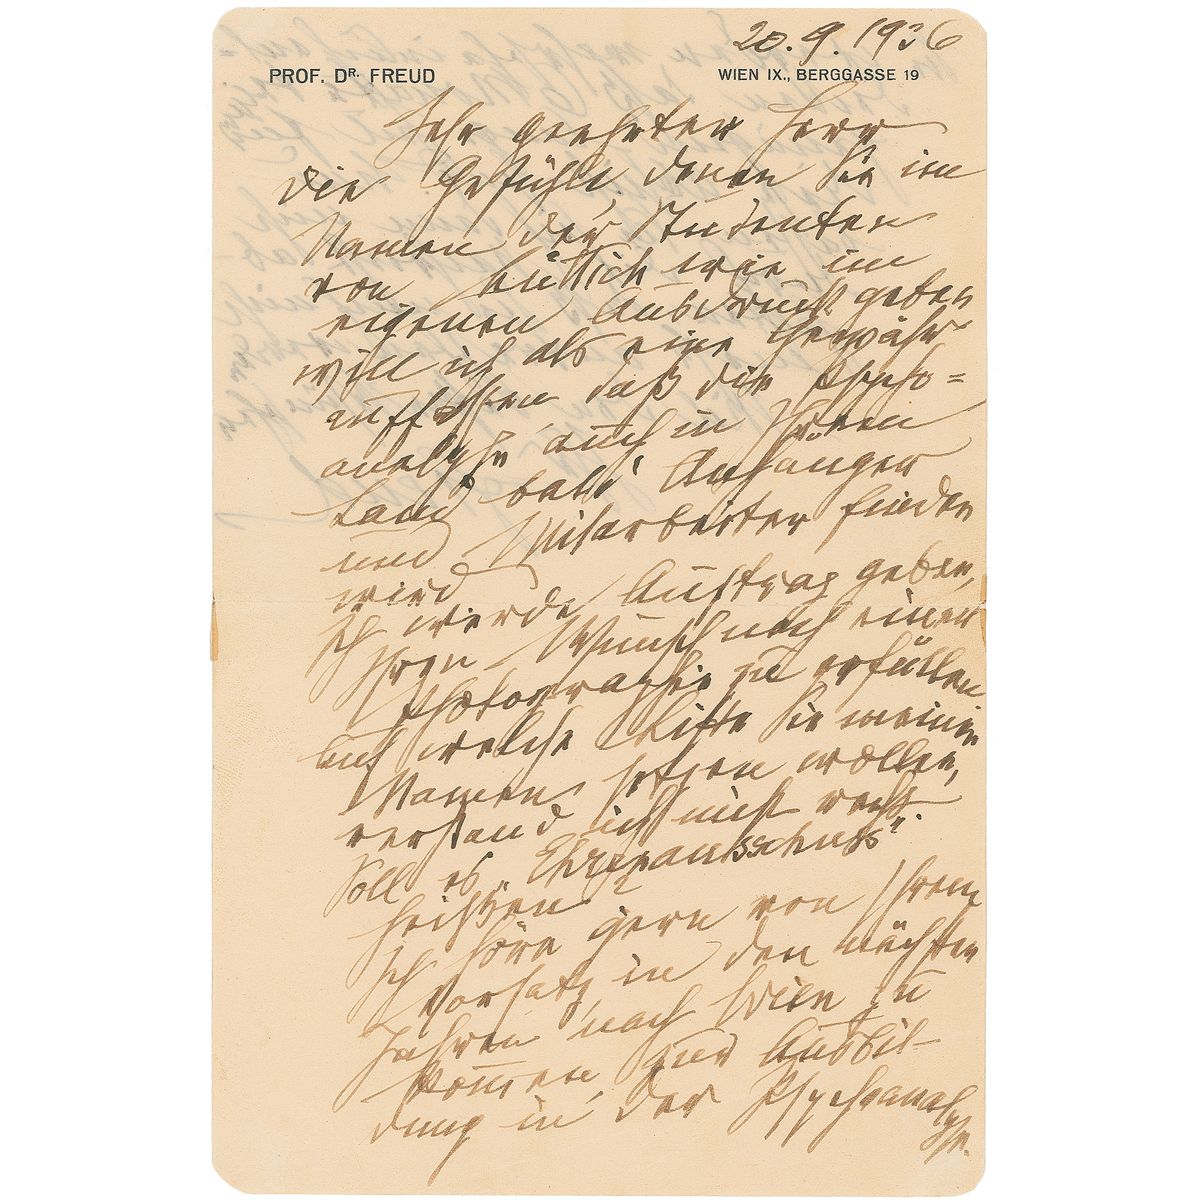 20.9.1936
PROF. DR. FREUD WIEN IX., BERGGASSE 19
Sehr geehrter Herr
die Gefühle, denen Sie im
Namen der Studenten
von Lüttich wie im
eigenen Ausdruck geben
will ich als eine Gewähr
auffassen daß die Psycho=
analyse auch in Ihrem
Land bald Anhänger
und Mitarbeiter finden
wird
Ich werde Auftrag geben,
Ihren Wunsch nach einer
Photographie zu erfüllen
auf welche Liste Sie meinen
Namen setzen wollen,
verstand ich nicht recht.
Soll es „Ehrenausschuss"
heißen?
Ich höre gern von Ihrem
Vorsatz, in den nächsten
Jahren nach Wien zu
kommen, zur Ausbil-
dung in der Psychoanalyse.